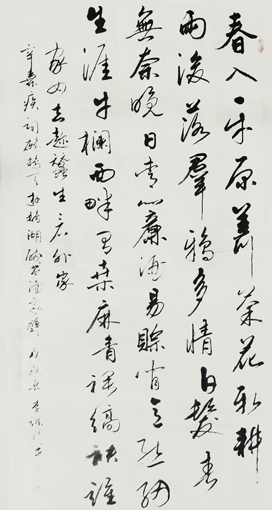 春入平原薺菜花新耕
雨後落羣鴉多情白髮春
無奈晚日青簾酒易賒閒意態細
生涯牛欄西畔有桑麻青裙縞袂誰
家女去趁蠶生看外家
辛棄疾詞鷓鴣天游鵝湖醉書酒家壁